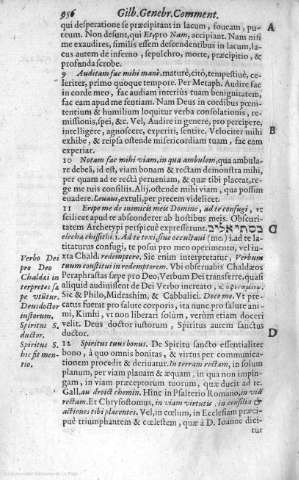 956 Gilb. Genebr. Comment.
qui desperatione se præcipitant in lacum, foueam, pu-
teum. Non desunt, qui Et, pro Nam, accipiant. Nam nisi
me exaudires, similis essem descendentibus in lacum, la-
cus autem de inferno, sepulchro, morte, præcipitio, &
profunda scrobe. A
9 Auditam fac mihi manè. maturè, citò, tempestiuè, ce-
leriter, primo quoque tempore. Per Metaph. Audire fac
in corde meo, fac audiam interiùs tuam benignitatem,
fac eam apud me sentiam. Nam Deus in cordibus pœni-
tentium & humilium loquitur verba consolationis, re-
missionis, spei, &c. Vel, Audire in genere, pro percipere,
intelligere, agnoscere, experiri, sentire. Velociter mihi B
exhibe, & reipsa ostende misericordiam tuam, fac eam
experiar.
10 Notam fac mihi viam, in qua ambulem. qua ambula-
re debeā, id est, viam bonam & rectam demonstra mihi,
per quam ad te rectà perueniam, & quæ tibi placeat, re-
ge me tuis consiliis. Alij, ostende mihi viam, quo possim
euadere. Leuaui, extuli, per precem videlicet.
11 Eripe me de inimicis meis Domine, ad te confugi, vt
scilicet apud te absconderer ab hostibus meis. Obscuri-
tatem Archetypi perspicuè expresserunt. אליך כסתי C
elecha chissithi. Ad te texi siue occultaui (me) i ad te la-
titaturus confugi, te posui pro meo operimento, vel iu-
xta Chald. redemptore. Sic enim interpretatur, Verbum
tuum constitui in redemptorem. Vbi obseruabis Chaldæos
Peraphrastas sæpe pro Deo, Verbum Dei transferre, quasi
aliquid audiuissent de Dei Verbo increato
Sic & Philo, Midraschim, & Cabbalici. Doce me. Vt pre-
catus fuerat pro salute corporis, ita nunc pro salute ani-
mi, Kimhi, vt non liberari solùm, verùm etiam doceri
velit. Deus doctor iustorum, Spiritus autem sanctus
doctor. D
12 Spiritus tuus bonus. De Spiritu sancto essentialiter
bono, à quo omnis bonitas, & virtus per communicatio-
nem procedit & deriuatur. In terram rectam, in solum
planum, per viam planam & æquam, in qua non impin-
gam, in viam præceptorum tuorum, quæ ducit ad re-
Gall. Au droict chemin. Hinc in Psalterio Romano, in viā
rectam. Et Chrysostomus, in viam virtutis, in consilia &
actiones tibi placentes. Vel, in cœlum, in Ecclesiam præci-
puè triumphantem & cœlestem, quæ à D. Ioanne dici-
tur
Verbo Dei
pro Deo
Chaldæi in-
terpretes sæ-
pe vtūtur.
Deus doctor
iustorum.
Spiritus S.
ductor.
Spiritus S.
hîc fit men-
tio.